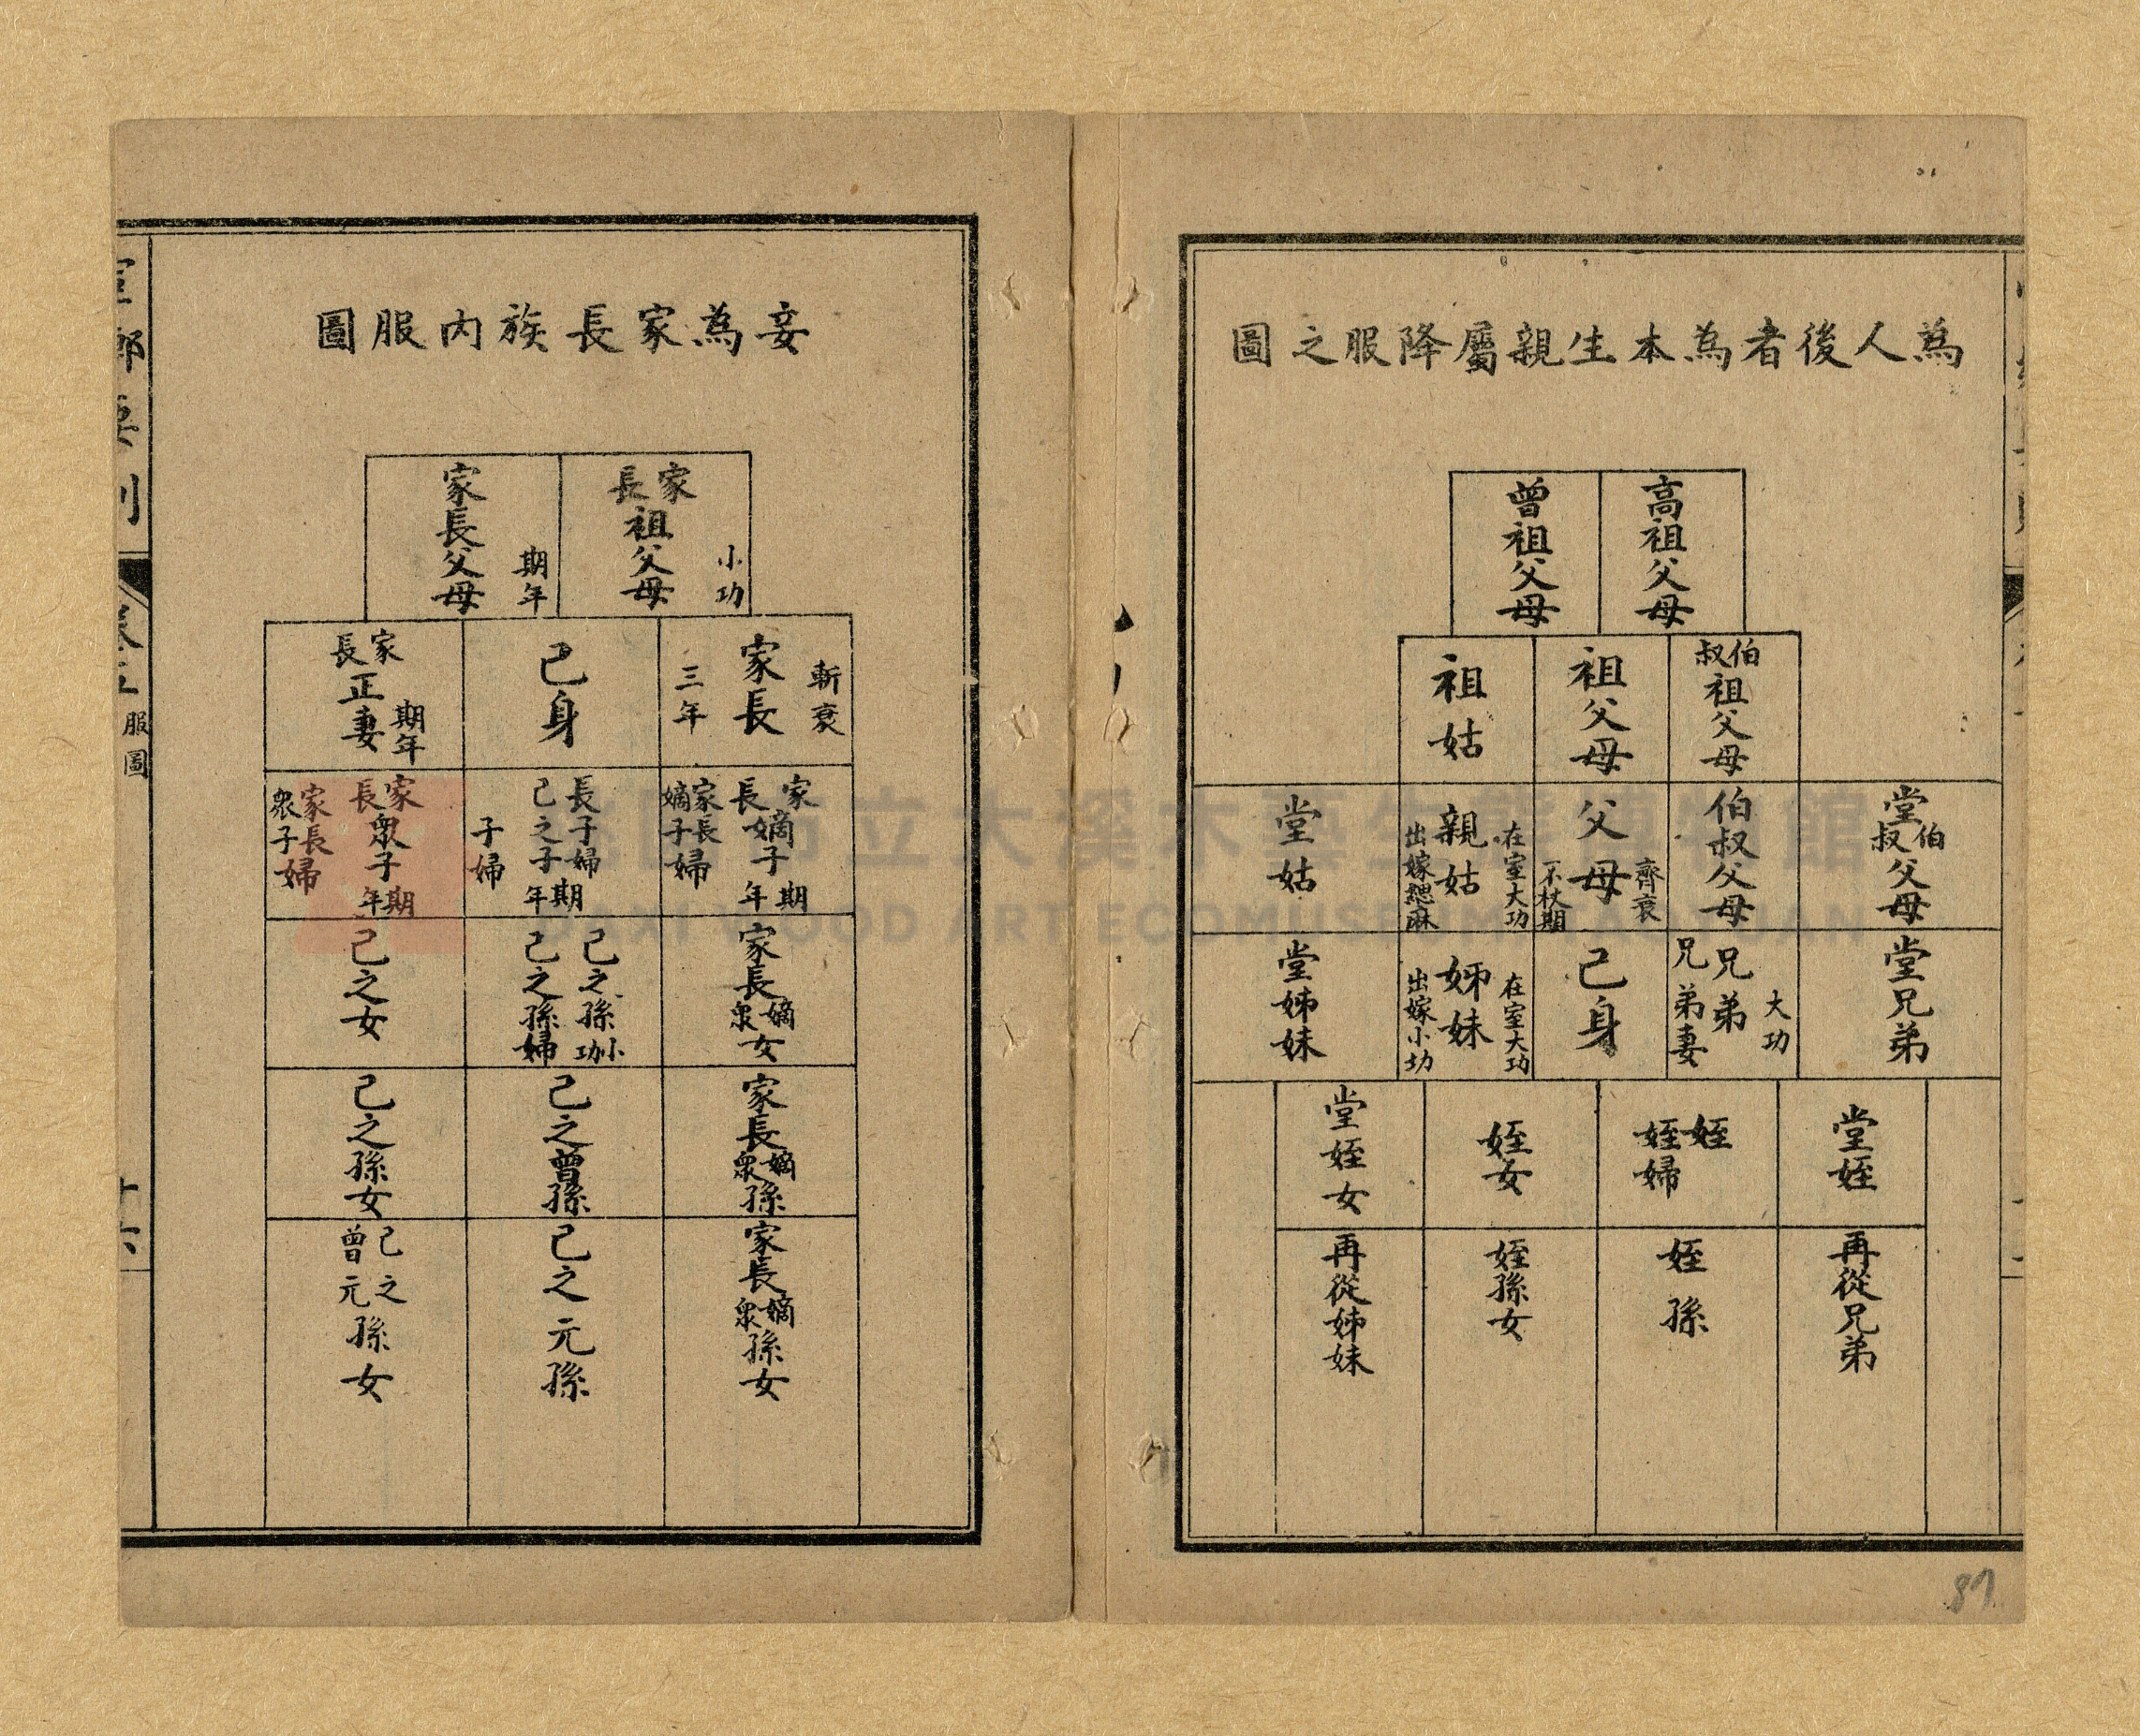 為人後者為本生親屬降服之圖
高祖父母
曾祖父母
伯叔祖父母
祖父母
祖姑
堂伯叔父母
伯叔父母
父母 齊衰 不杖期
親姑 在室大功 出嫁緦麻
堂姑
堂兄弟
兄弟 兄弟妻 大功
己身
姊妹 在室大功 出嫁小功
堂姊妹
堂姪
姪 姪婦
姪女
堂姪女
再從兄弟
姪孫
姪孫女
再從姊妹
87
妾為家長族內服圖
家長祖父母 小功
家長父母 期年
家長 斬衰 三年
己身
家長正妻 期年
家長嫡子 期年 家長嫡子婦
長子婦 己之子 期年 子婦
家長眾子 期年 家長眾子婦
家長嫡眾女
己之孫 小功 己之孫婦
己之女
家長嫡眾孫
己之曾孫
己之孫女
家長嫡眾孫女
己之元孫
己之曾元孫女
服圖
市立大溪木藝生態博物館
DAXI WOOD ART ECOMUSEUM, TAOYUAN